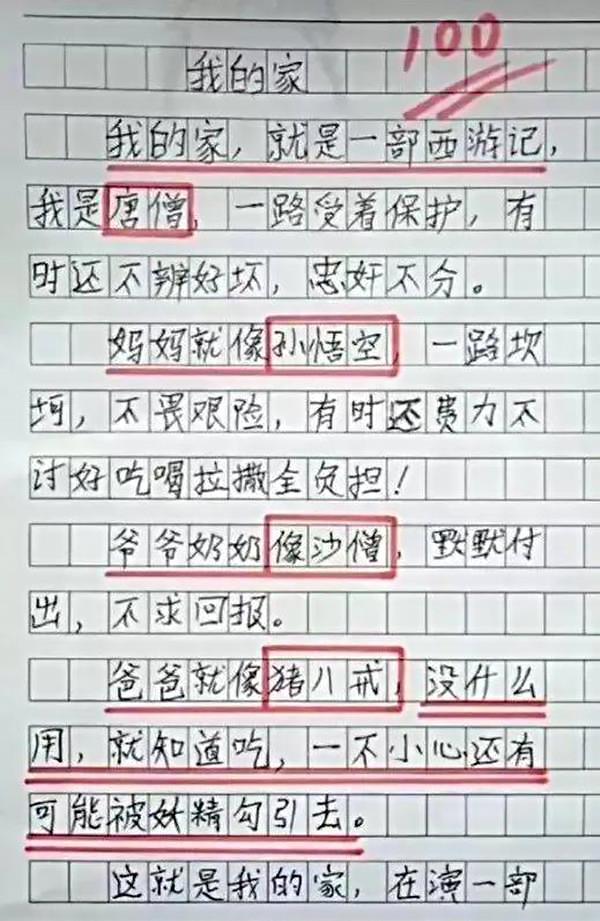 100
我的家
我的家，就是一部西游记，
我是唐僧，一路受着保护，有
时还不辨好坏，忠奸不分。
妈妈就像孙悟空，一路坎
坷，不畏艰险，有时还费力不
讨好吃喝拉撒全负担！
爷爷奶奶像沙僧，默默付
出，不求回报。
爸爸就像猪八戒，没什么
用，就知道吃，一不小心还有
可能被妖精勾引去。
这就是我的家，在演一部